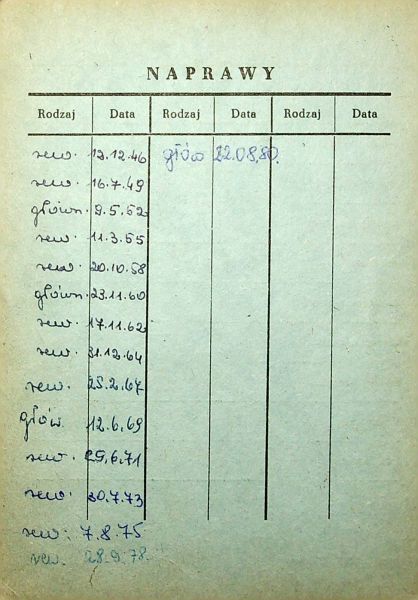 NAPRAWY
Rodzaj Data Rodzaj Data Rodzaj Data
rew. 12.12.46 głów 22.08.80.
rew. 16.7.49
główn. 9.5.52
rew. 11.3.55
rew. 20.10.58
główn. 23.11.60
rew. 17.11.62
rew. 31.12.64
rew. 23.2.67
głów 12.6.69
rew. 29.6.71
rew. 30.7.73
rew. 7.8.75
rew. 28.9.78.